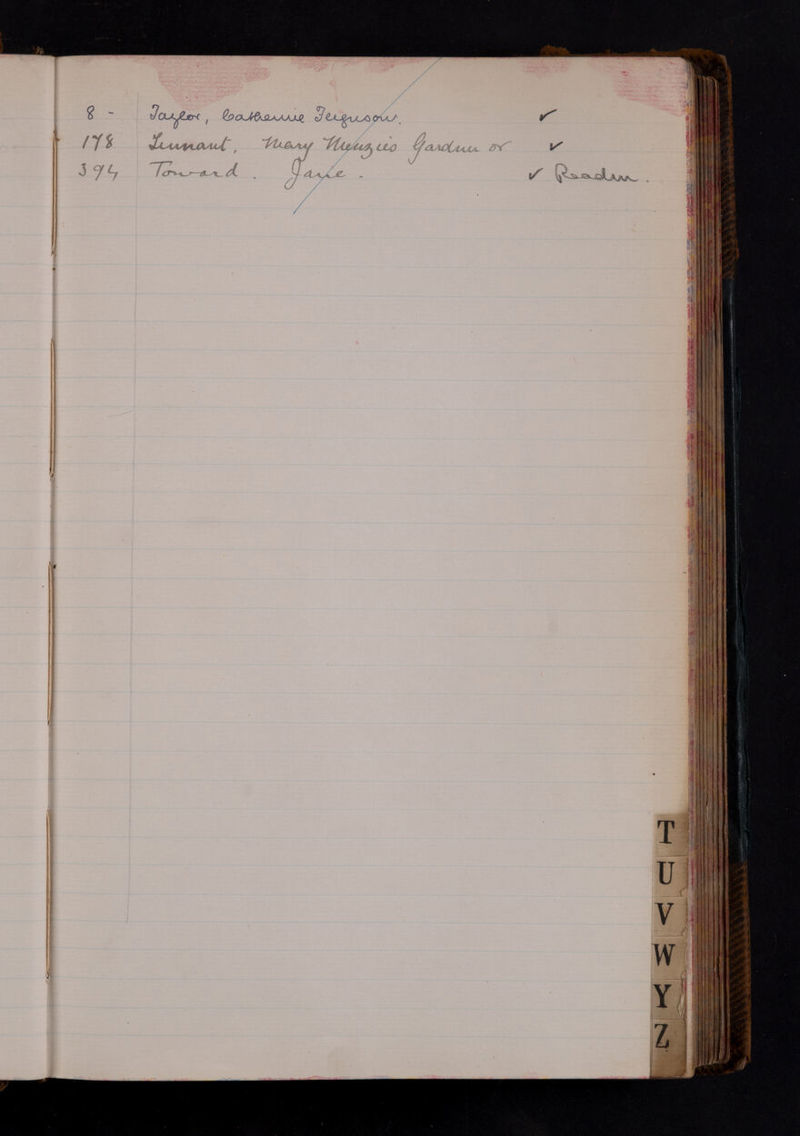 8 - Taylor, Catherine Ferguson. ✓
178 Tennant, Mary Menzies Gardner or ✓
394 Toward. Jane. ✓ Readm.
T
U
V
W
Y
Z